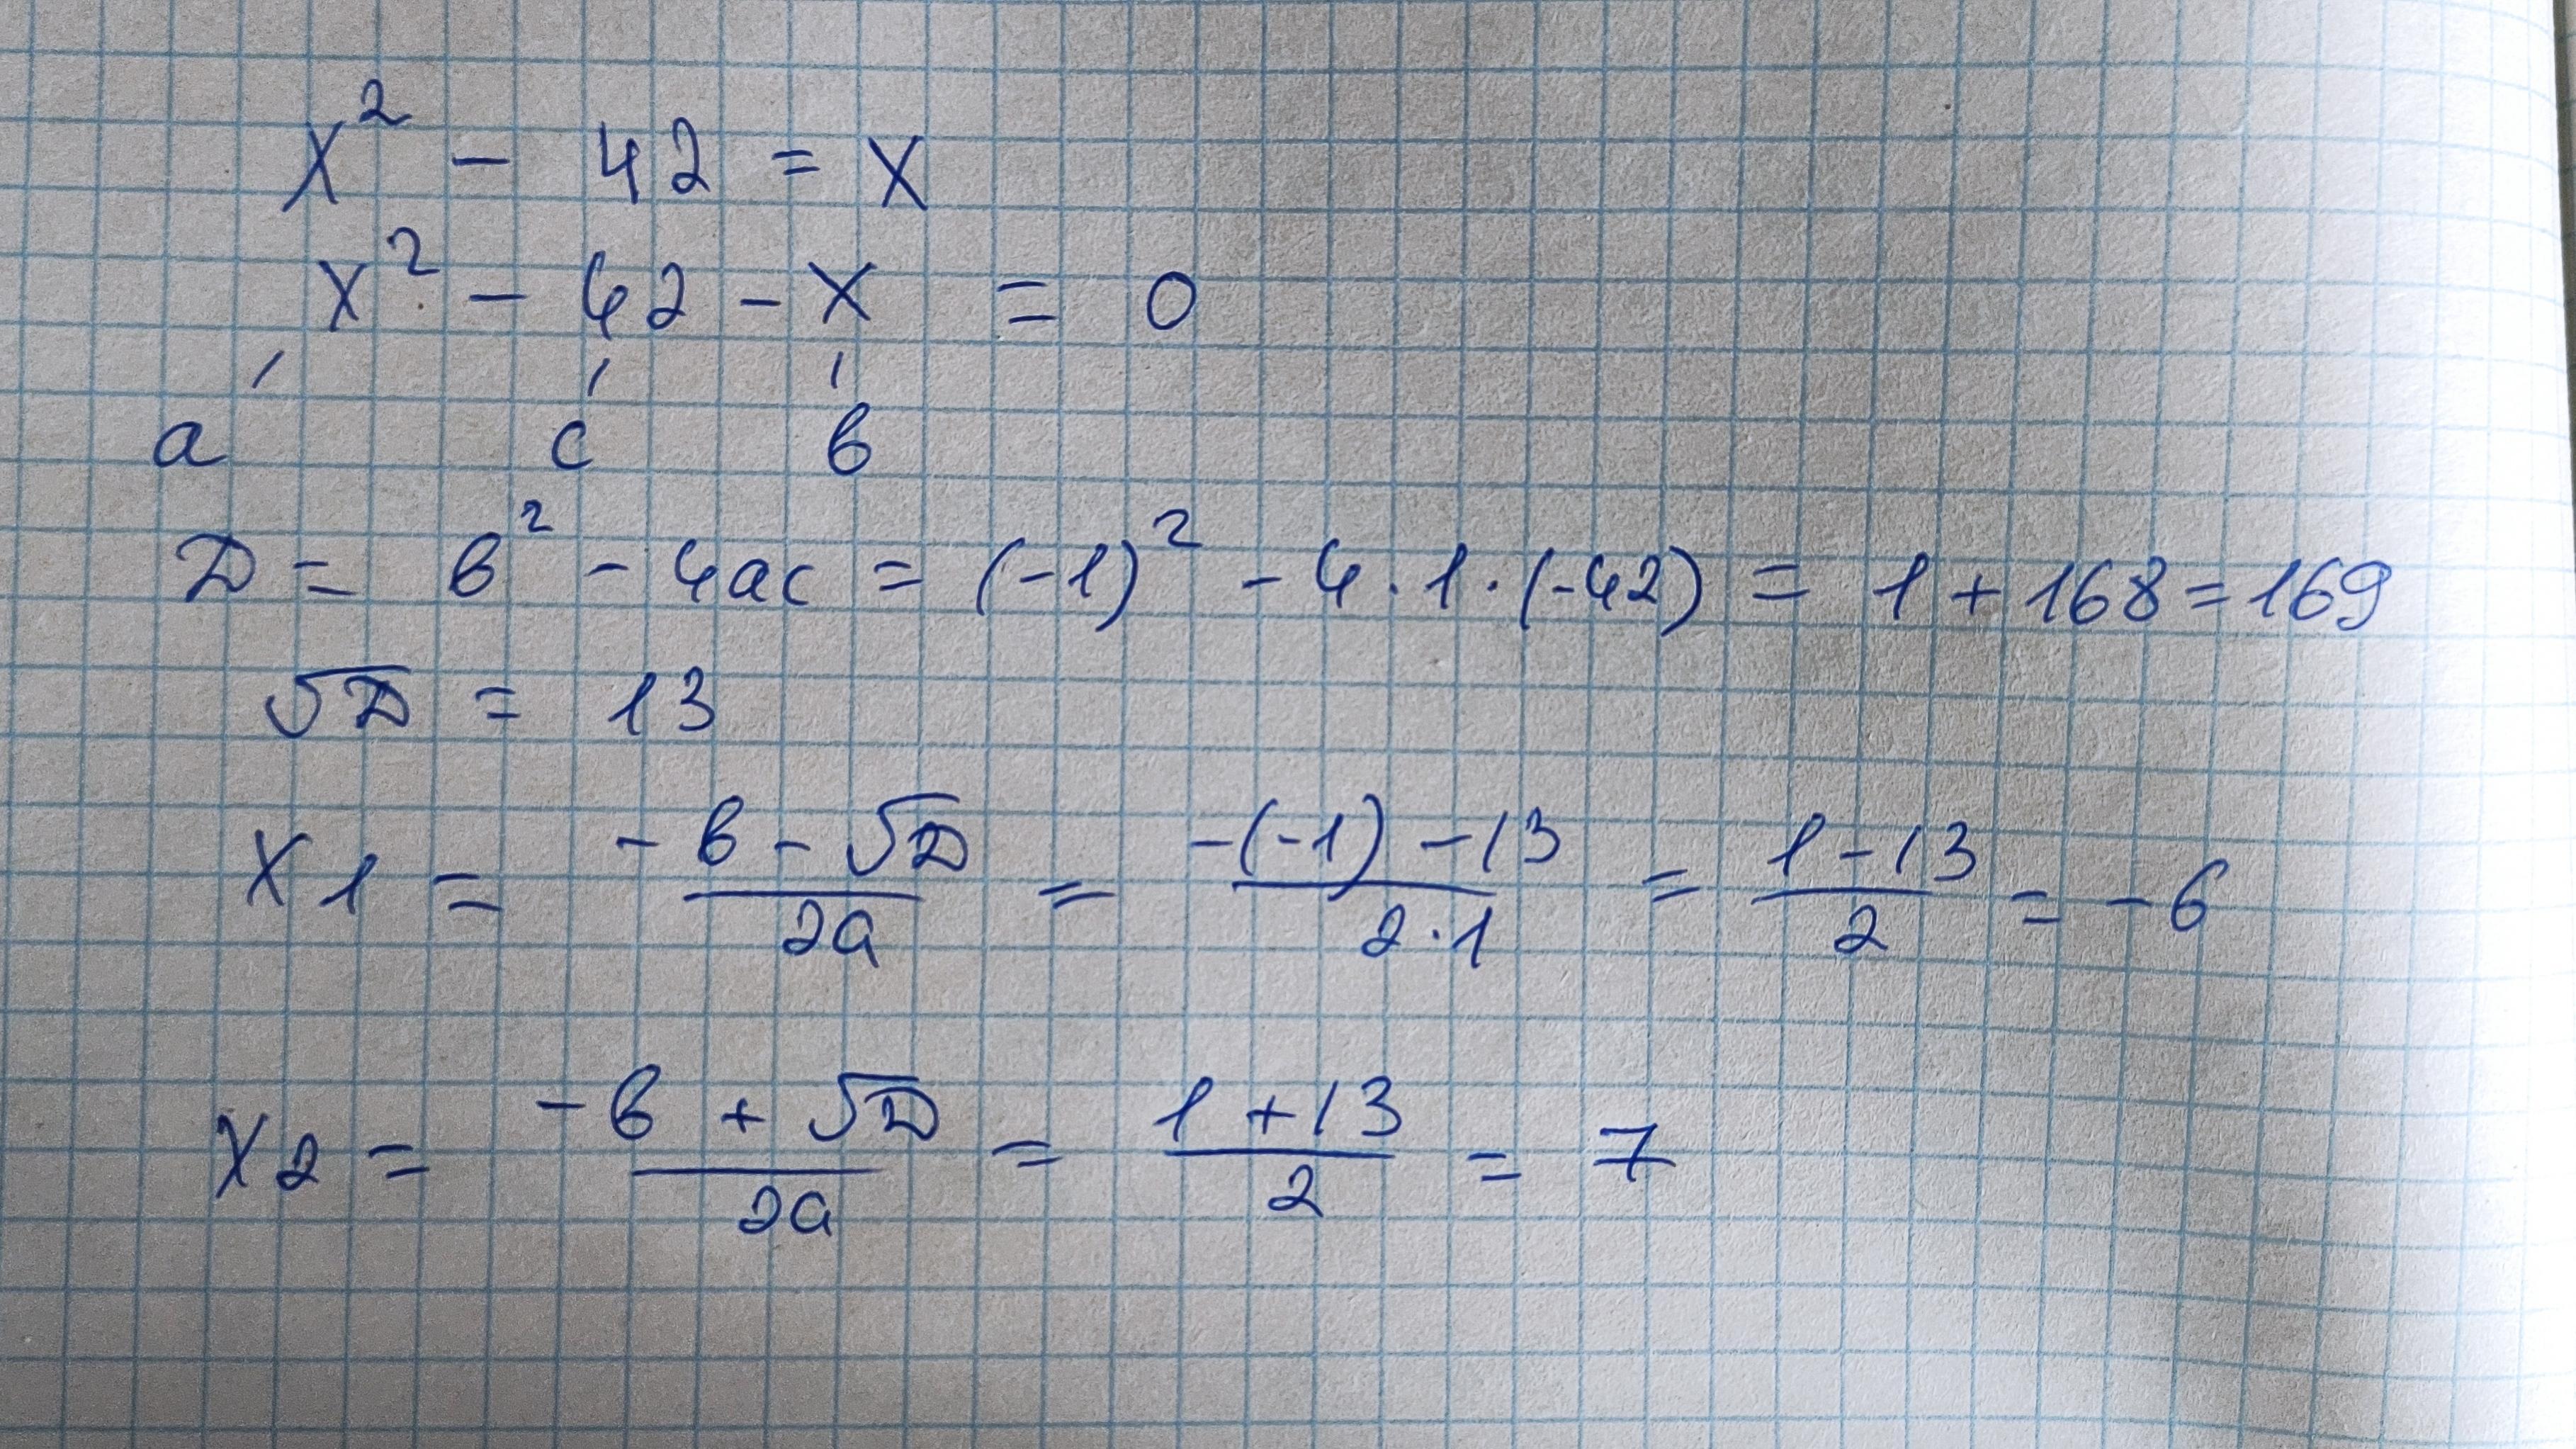 x² - 42 = x
x² - 42 - x = 0
a c b
D = b² - 4ac = (-1)² - 4 · 1 · (-42) = 1 + 168 = 169
√D = 13
x1 = (-b - √D)/(2a) = (-(-1) - 13)/(2·1) = (1 - 13)/2 = -6
x2 = (-b + √D)/(2a) = (1 + 13)/2 = 7